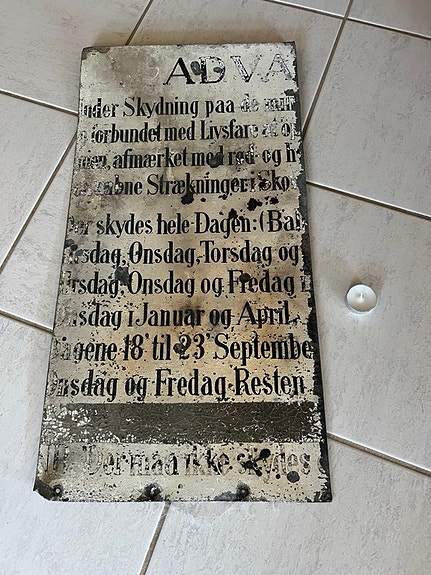 ADVA
under Skydning paa de
forbundet med Livsfare at op
afmærket med rød og h
aabne Strækninger i Sko
Der skydes hele Dagen: (Bal
sdag, Onsdag, Torsdag og
rsdag, Onsdag og Fredag i
sdag i Januar og April,
agene 18' til 23' Septembe
nsdag og Fredag Resten
Der maa ikke skydes